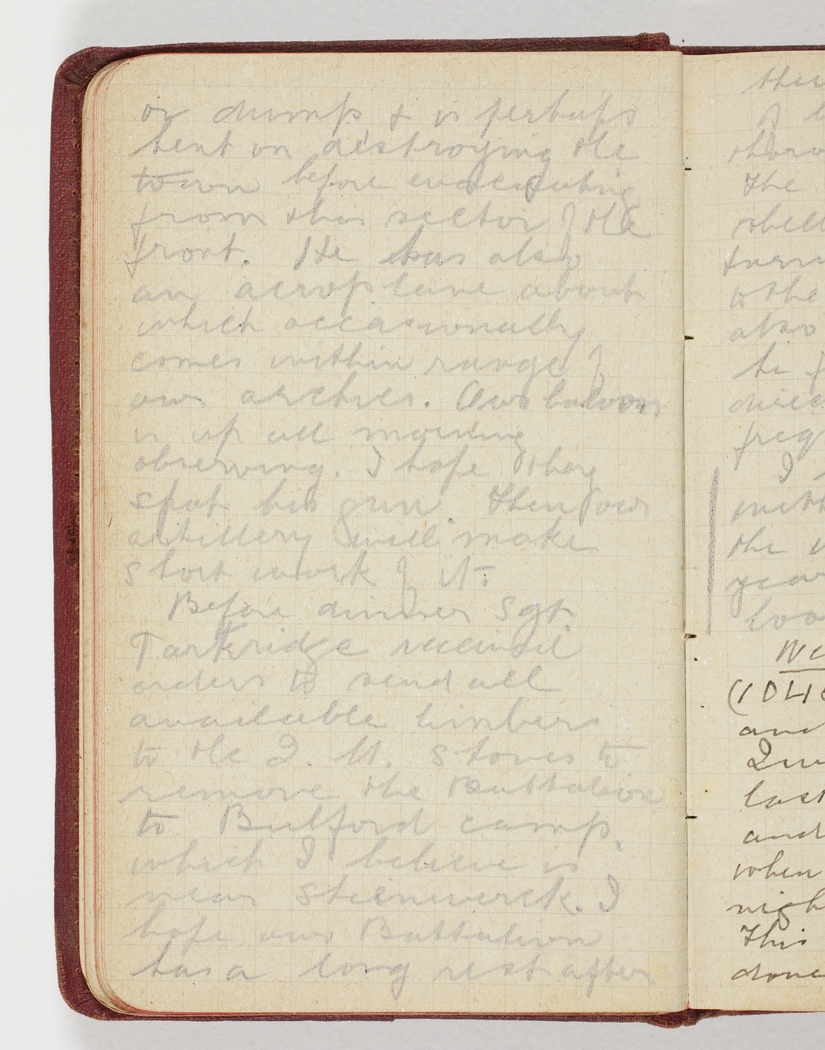 or dump & is perhaps
bent on destroying the
town before evacuating
from this sector of the
front. He has also
an aeroplane about
which occasionally
comes within range of
our archies. Our baloon
is up all morning
observing. I hope they
spot his gun. Then our
artillery will make
short work of it.
Before dinner Sgt.
Tarkridge received
orders to send all
available limbers
to the Q. M. Stores to
remove the Battalion
to Bulford camp,
which I believe is
near Steenwerck. I
hope our Battalion
has a long rest after
the
also
the
years
and
last
and
when
This
done